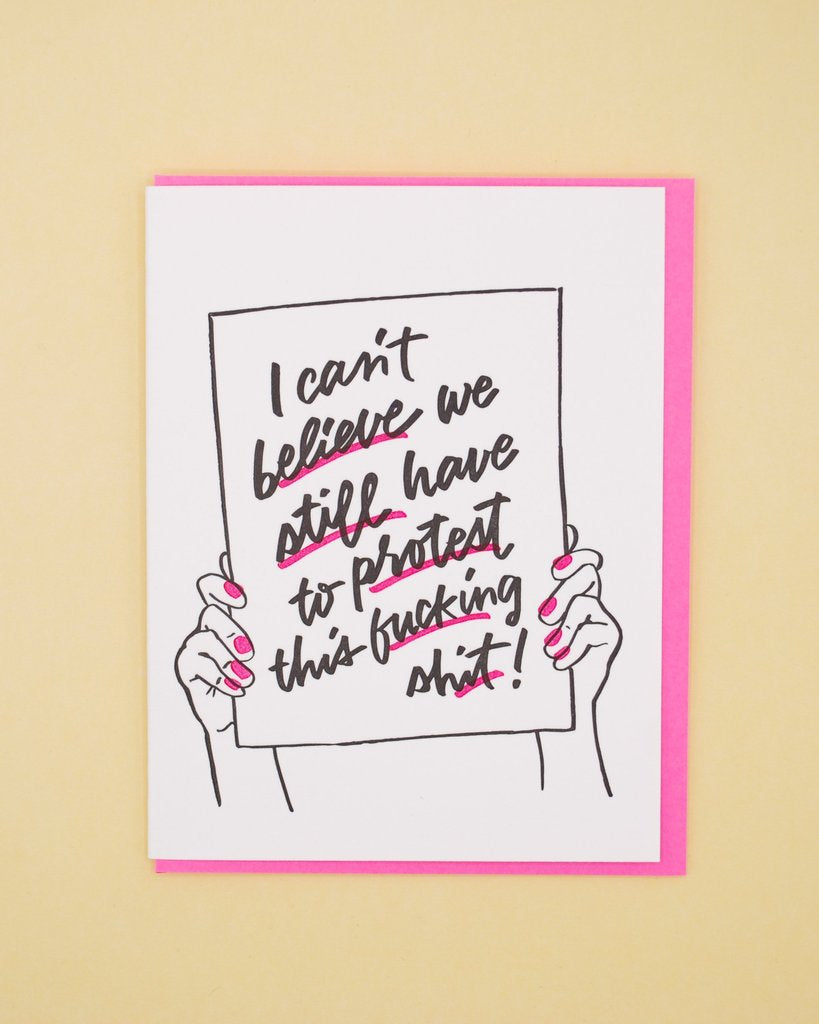 I can't
believe we
still have
to protest
this fucking
shit!